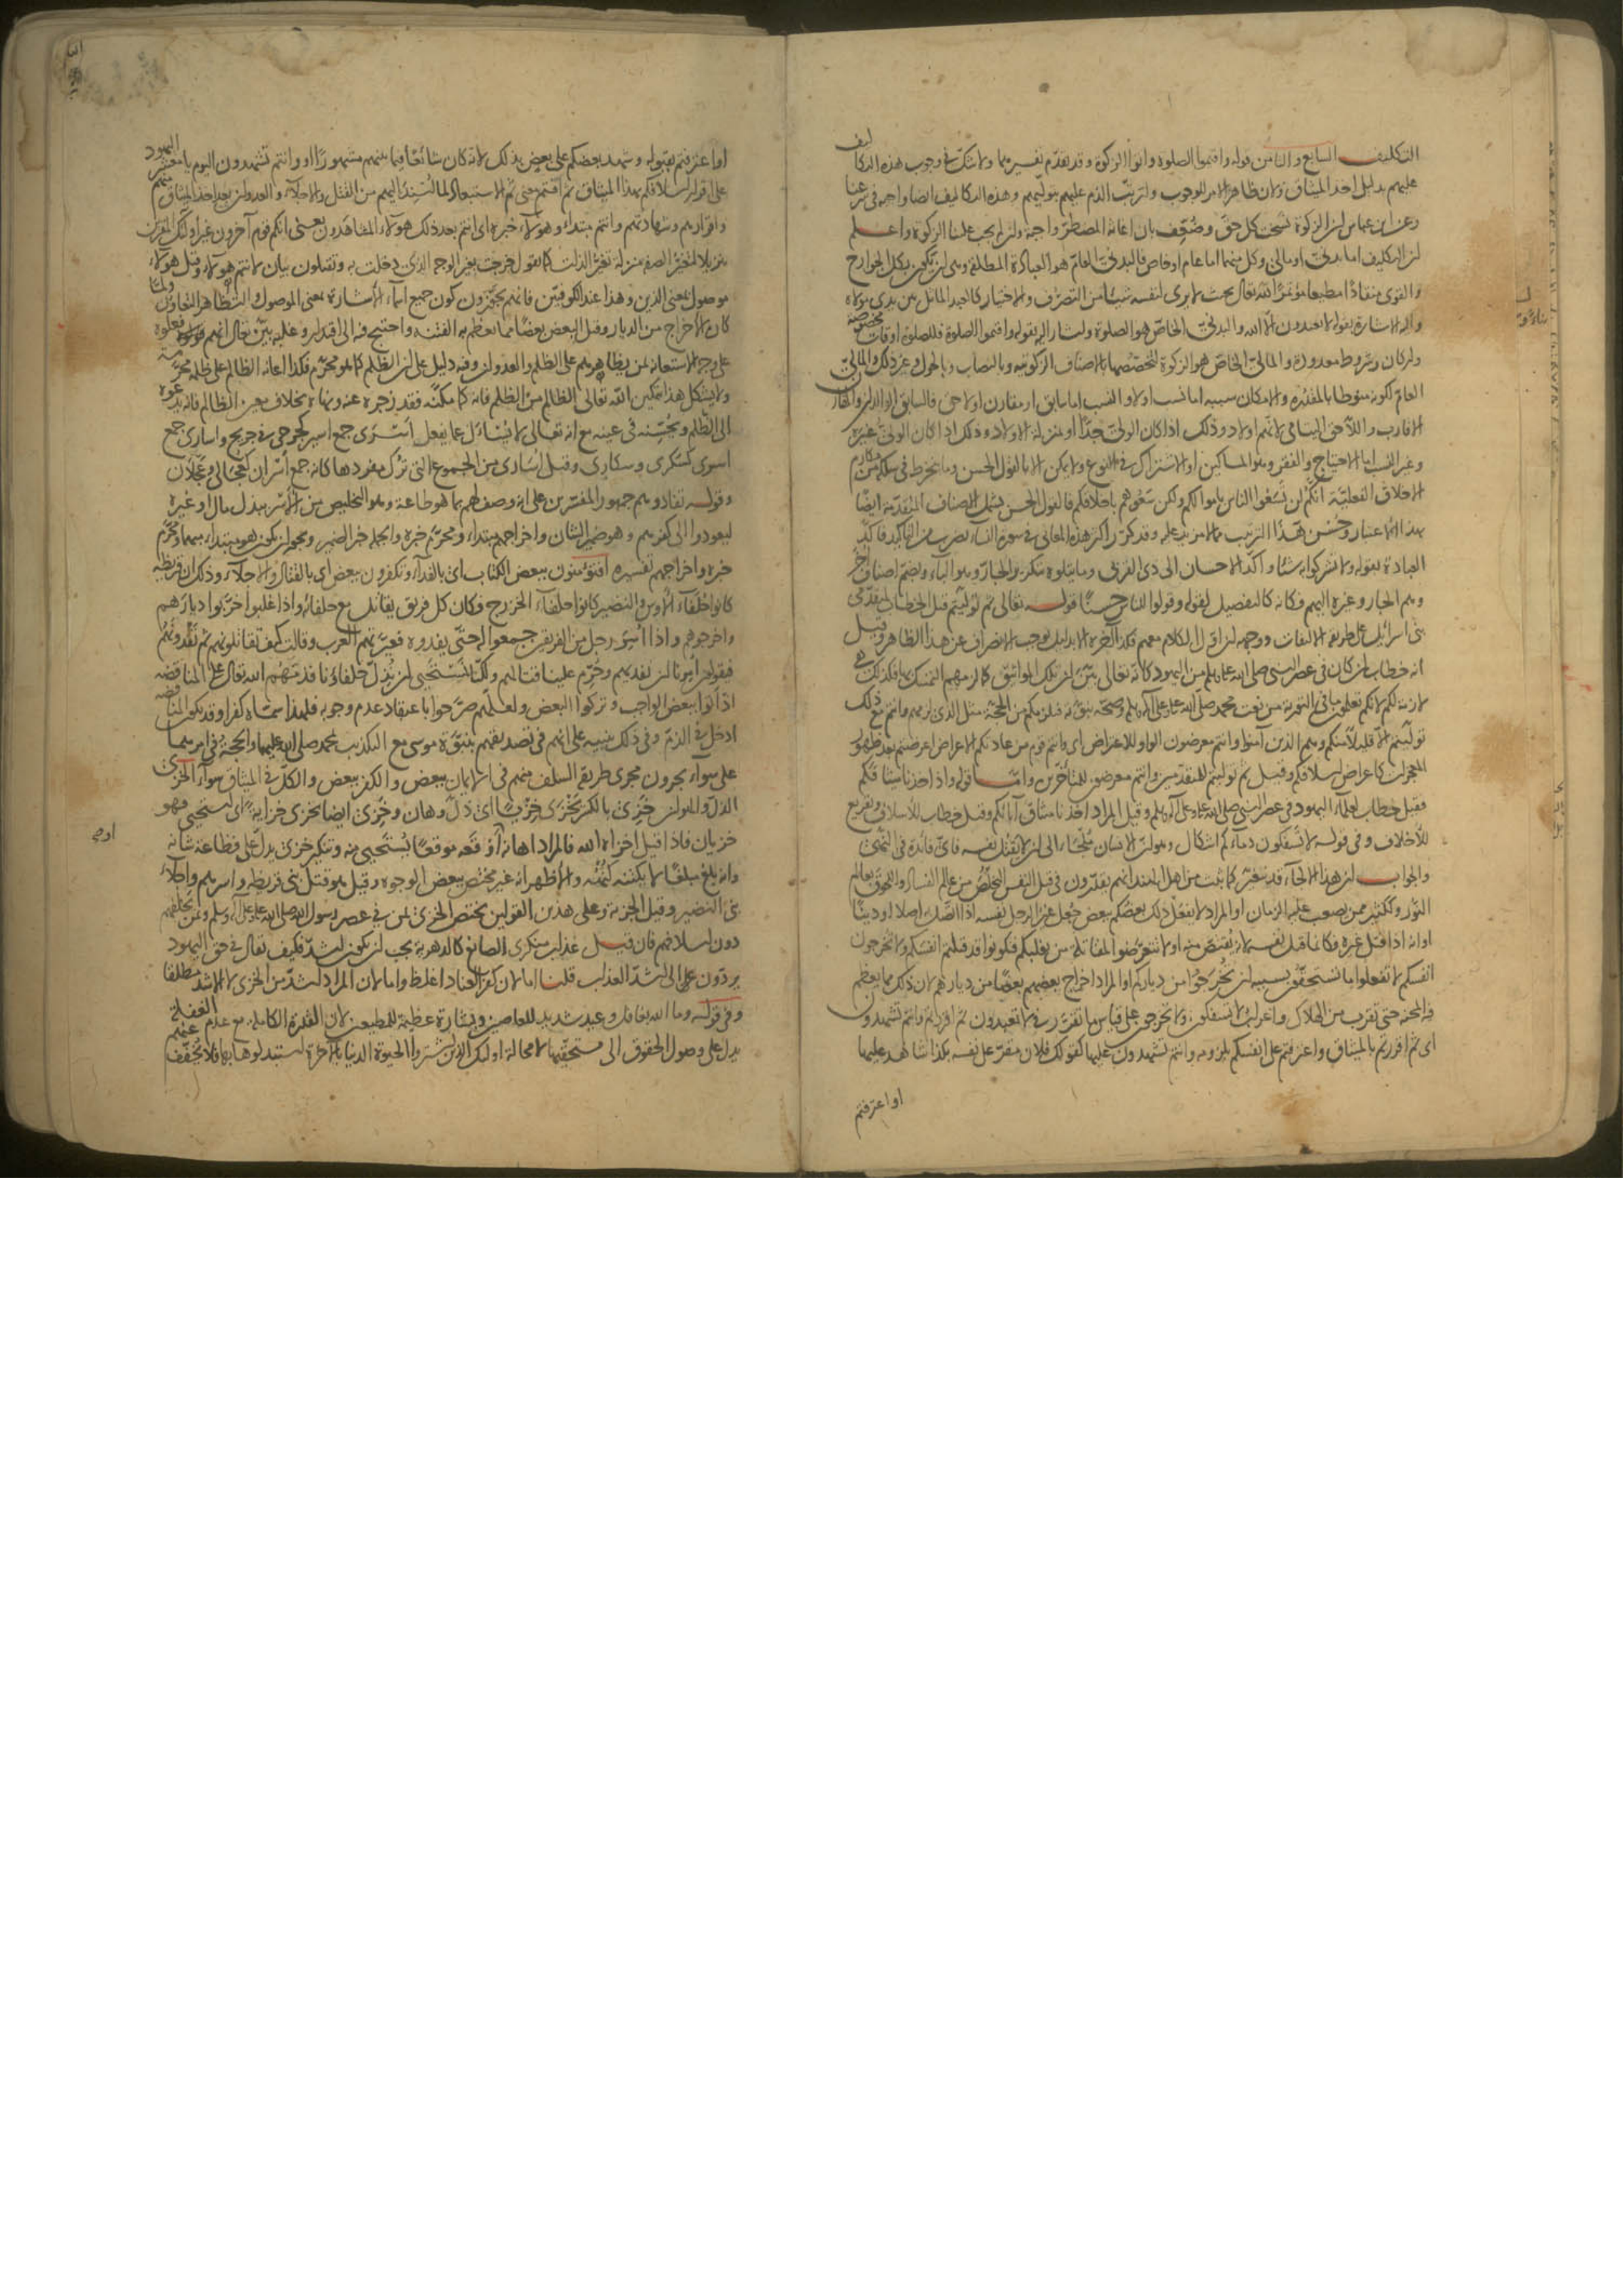 التكليف السابع والثامن قوله واقيموا الصلوة وآتوا الزكوة وقد تقدم تفسيرهما ولا شك في وجوب هذه التكاليف
عليهم بدليل اخذ الميثاق ولان ظاهر الامر للوجوب ولترتب الذم عليهم بتوليهم وهذه التكاليف ايضا واجبة في شرعنا
وعن ابن عباس ان الزكوة نسخت كل حق وضعف بان اعانة المضطر واجبة وان لم يجب علينا الزكوة واعلم
ان التكليف اما بدني او مالي وكل منهما اما عام او خاص فالبدني العام هو العبادة المطلقة وهي ان يكون بكل الجوارح
والقوى منقادا مطيعا مؤتمرا لله تعالى بحيث لا يرى لنفسه شيئا من التصرف والاختيار كالعبد الماثل بين يدي مولاه
واليه الاشارة بقوله لا تعبدون الا الله والبدني الخاص هو الصلوة واشار اليه بقوله واقيموا الصلوة فللصلوة اوقات مخصوصة
واركان وشروط معدودة والمالي الخاص هو الزكوة لتخصصها بالاصناف الزكوية وبالنصاب وبالحول وغير ذلك والمالي
العام لكونه منوطا بالمقدرة والامكان سببه اما نسب اولا والنسب اما سابق او مقارن او لاحق فالسابق الوالدان والمقارن
الاقارب واللاحق اليتامى لانهم اولاد وذلك اذا كان الولي جدا او بمنزلة الاولاد وذلك اذا كان الولي غيره
وغير النسب اما الاحتياج والفقر وهو المساكين او الاشتراك في النوع ولا يمكن الا بالقول الحسن وما ينخرط في سلكه من مكارم
الاخلاق الفعلية انكم لن تسعوا الناس باموالكم ولكن سعوهم باخلاقكم فالقول الحسن يشمل الاصناف المتقدمة ايضا
بهذا الاعتبار وحسن هذا الترتيب مما لا مزيد عليه وقد كرر اكثر هذه المعاني في سورة النساء بضرب من التاكيد فاكد
العبادة بقوله ولا تشركوا به شيئا واكد الاحسان الى ذي القربى وما يتلوه بتكرير الجار وهو الباء وبضم اصناف اخر
وهم الجار وغيره اليهم فكانه كالتفصيل لقوله وقولوا للناس حسنا قوله تعالى ثم توليتم قيل الخطاب لمتقدمي
بني اسرائيل على طريقة الالتفات ووجهه ان اول الكلام معهم فكذا آخره الا بدليل يوجب الانصراف عن هذا الظاهر وقيل
انه خطاب لمن كان في عصر النبي صلى الله عليه وسلم من اليهود كانه تعالى بين ان تلك المواثيق كما لزمهم التمسك بها فكذلك هي
لازمة لكم لانكم تعلمون ما في التورية من نعت محمد صلى الله عليه وعلى آله وسلم وصحة نبوته فيلزمكم من الحجة مثل الذي لزمهم وانتم مع ذلك
توليتم الا قليلا منكم وهم الذين آمنوا وانتم معرضون الواو للاعتراض اي وانتم قوم من عادتكم الاعراض اعرضتم بعد ظهور
المعجزات كاعراض اسلافكم وقيل ثم توليتم للمتقدمين وانتم معرضون للمتأخرين واما قوله واذ اخذنا ميثاقكم
فقيل خطاب لعلماء اليهود في عصر النبي صلى الله عليه وعلى آله وسلم وقيل المراد اخذنا ميثاق آبائكم وقيل خطاب للاسلاف وتقريع
للاخلاف وفي قوله لا تسفكون دماءكم اشكال وهو ان الانسان ملجأ الى ان لا يقتل نفسه فاي فائدة في النهي
والجواب ان هذا الالجاء قد يتغير كما ثبت من اهل الهند انهم يقدرون في قتل النفس التخلص من عالم الفساد واللحوق بعالم
النور وككثير ممن يصعب عليه الزمان او المراد لا يفعل ذلك بعضكم ببعض جعل غير الرجل نفسه اذا اتصل به اصلا او دينا
او انه اذا قتل غيره فكانما قتل نفسه لانه يقتص منه او لا تتعرضوا لمقاتلة من يغلبكم فتكونوا قد قتلتم انفسكم ولا تخرجون
انفسكم لا تفعلوا ما تستحقون بسببه ان تخرجوا من دياركم او المراد اخراج بعضهم بعضا من ديارهم لان ذلك مما يعظم
فيه المحنة حتى تقرب من الهلاك واعراب لا تسفكون ولا تخرجون على قياس ما تقرر في لا تعبدون ثم اقررتم وانتم تشهدون
اي ثم اقررتم بالميثاق واعترفتم على انفسكم بلزومه وانتم تشهدون عليها كقولك فلان مقر على نفسه بكذا شاهد عليها
او اعترفتم
او اعترفتم بقبوله وشهد بعضكم على بعض بذلك لانه كان شائعا فيما بينهم مشهورا او وانتم تشهدون اليوم يا معشر اليهود
على اقرار اسلافكم بهذا الميثاق ثم انتم معنى ثم الاستبعاد لما اسند اليهم من القتل والاجلاء والعدوان بعد اخذ الميثاق منهم
واقرارهم وشهادتهم وانتم مبتدا وهؤلاء خبره اي انتم بعد ذلك هؤلاء المشاهدون يعني انكم قوم آخرون غير اولئك المقرين
تنزيلا لتغير الصفة منزلة تغير الذات كما تقول خرجت بغير الوجه الذي دخلت به وتقتلون بيان لانتم هؤلاء وقيل هؤلاء
موصول بمعنى الذين وهذا عند الكوفيين فانهم يجوزون كون جميع اسماء الاشارة بمعنى الموصول والتظاهر التعاون ولما
كان الاخراج من الديار وقتل البعض بعضا مما تعظم به الفتنة واحتيج فيه الى اقتدار وغلبة بين تعالى انهم فعلوه
على وجه الاستعانة بمن يظاهرهم على الظلم والعدوان وفيه دليل على ان الظلم كما هو محرم فكذا اعانة الظالم على ظلمه محرمة
ولا يشكل هذا بتمكين الله تعالى الظالم من الظلم فانه كما مكنه فقد زجره عنه ونهاه بخلاف معين الظالم فانه يدعوه
الى الظلم ويحسنه في عينه مع انه تعالى لا يسأل عما يفعل اسرى جمع اسير كجرحى في جريح واسارى جمع
اسرى كسكرى وسكارى وقيل اسارى من الجموع التي ترك مفردها كانه جمع اسران كعجالى وعجلان
وقوله تفادوهم جمهور المفسرين على انه وصف لهم بما هو طاعة وهو التخليص من الاسر ببذل مال او غيره
ليعودوا الى كفرهم وهو ضمير الشان واخراجهم مبتداء ومحرم خبره والجملة خبر الضمير ويجوز ان يكون هو مبتداء مبهما ومحرم
خبره واخراجهم تفسيره افتؤمنون ببعض الكتاب اي بالفداء وتكفرون ببعض اي بالقتال والاجلاء وذلك ان قريظة
كانوا حلفاء الاوس والنضير كانوا حلفاء الخزرج فكان كل فريق يقاتل مع حلفائه واذا غلبوا خربوا ديارهم
واخرجوهم واذا اسر رجل من الفريقين جمعوا له حتى يفدوه فعيرتهم العرب وقالت كيف تقاتلونهم ثم تفدونهم
فيقولون امرنا ان نفديهم وحرم علينا قتالهم ولكنا نستحيي ان يذل حلفاؤنا فذمهم الله تعالى على المناقضة
اذ اتوا ببعض الواجب وتركوا البعض ولعلهم صرحوا باعتقاد عدم وجوبه فلهذا سماه كفرا وقد تكون المناقضة
ادخل في الذم وفي ذلك تنبيه على انهم في تصديقهم بنبوة موسى مع التكذيب بمحمد صلى الله عليهما والحجة في امرهما
على سواء يجرون مجرى طريقة السلف منهم في الايمان ببعض والكفر ببعض والكل في الميثاق سواء الخزي
الذل والهوان خزي بالكسر يخزى خزيا اي ذل وهان وخزي ايضا يخزى خزاية اي استحيى فهو
خزيان فاذا قيل اخزاه الله فالمراد اهانه او وقعه موقعا يستحيي منه وتنكير خزي يدل على فظاعة شانه
وانه بلغ مبلغا لا يكتنه كنهه والاظهر انه غير مختص ببعض الوجوه وقيل هو قتل بني قريظة واسرهم واجلاء
بني النضير وقيل الجزية وعلى هذين القولين يختص الخزي بمن في عصر رسول الله صلى الله عليه وعلى آله وسلم ومن يخلفهم
دون اسلافهم فان قيل عذاب منكري الصانع كالدهرية يجب ان يكون اشد فكيف قال في حق اليهود
يردون الى اشد العذاب قلنا اما لان كفر العناد اغلظ واما لان المراد اشد من الخزي لا الاشد مطلقا
وفي قوله وما الله بغافل وعيد شديد للعاصين وبشارة عظيمة للمطيعين لان القدرة الكاملة مع عدم الغفلة
يدل على وصول الحقوق الى مستحقيها لا محالة اولئك الذين اشتروا الحيوة الدنيا بالآخرة استبدلوها بها فلا يخفف عنهم